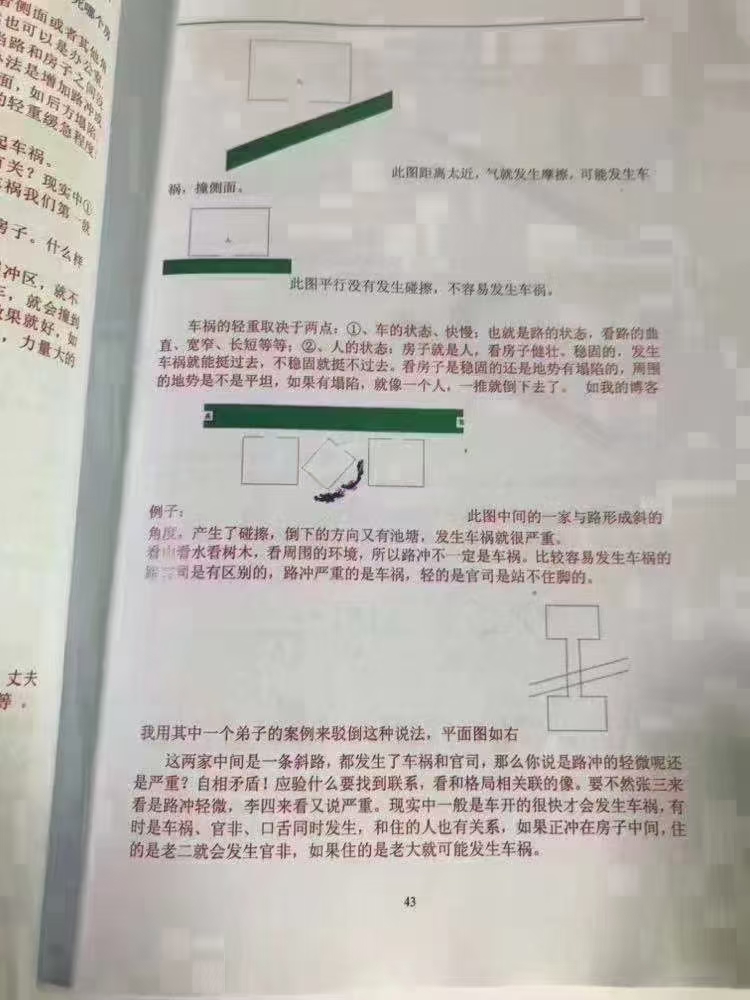 死哪个房
者侧面或者其他角
也可以是办公室
当路和房子之间没
办法是增加路冲或
面，如后方塌陷
的轻重缓急程度
起车祸。
有关？现实中①
车祸我们第一就
房子。什么样
冲区，就不
车，就会撞到
效果就好，如
，力量大的
丈夫
等。
此图距离太近，气就发生摩擦，可能发生车
祸，撞侧面。
此图平行没有发生碰擦，不容易发生车祸。
车祸的轻重取决于两点：①、车的状态、快慢；也就是路的状态，看路的曲
直、宽窄、长短等等；②、人的状态：房子就是人，看房子健壮、稳固的，发生
车祸就能挺过去，不稳固就挺不过去。看房子是稳固的还是地势有塌陷的，周围
的地势是不是平坦，如果有塌陷，就像一个人，一推就倒下去了。 如我的博客
例子：
此图中间的一家与路形成斜的
角度，产生了碰擦，倒下的方向又有池塘，发生车祸就很严重。
看山看水看树木，看周围的环境，所以路冲不一定是车祸。比较容易发生车祸的
官司是有区别的，路冲严重的是车祸，轻的是官司是站不住脚的。
我用其中一个弟子的案例来驳倒这种说法，平面图如右
这两家中间是一条斜路，都发生了车祸和官司，那么你说是路冲的轻微呢还
是严重？自相矛盾！应验什么要找到联系，看和格局相关联的像。要不然张三来
看是路冲轻微，李四来看又说严重。现实中一般是车开的很快才会发生车祸，有
时是车祸、官非、口舌同时发生，和住的人也有关系，如果正冲在房子中间，住
的是老二就会发生官非，如果住的是老大就可能发生车祸。
43